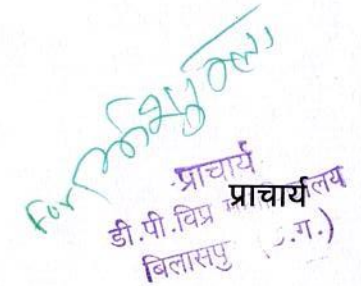 For
प्राचार्य
प्राचार्य
डी.पी.विप्र लय
बिलासपु .ग.)